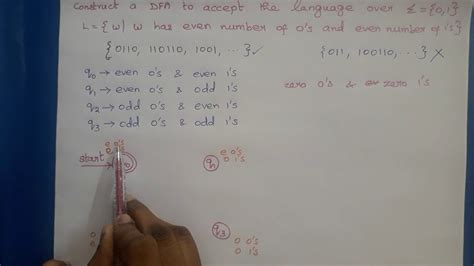 Construct a DFA to accept the language over Σ={0,1}
L = {w| w has even number of 0's and even number of 1's}
{0110, 110110, 1001, ...} ✓ {011, 100110, ...} X
q0 → even 0's & even 1's
q1 → even 0's & odd 1's zero 0's & zero 1's
q2 → odd 0's & even 1's
q3 → odd 0's & odd 1's
e 0's
start
q1 e 0's
o 1's
q3
o 0's
o 1's